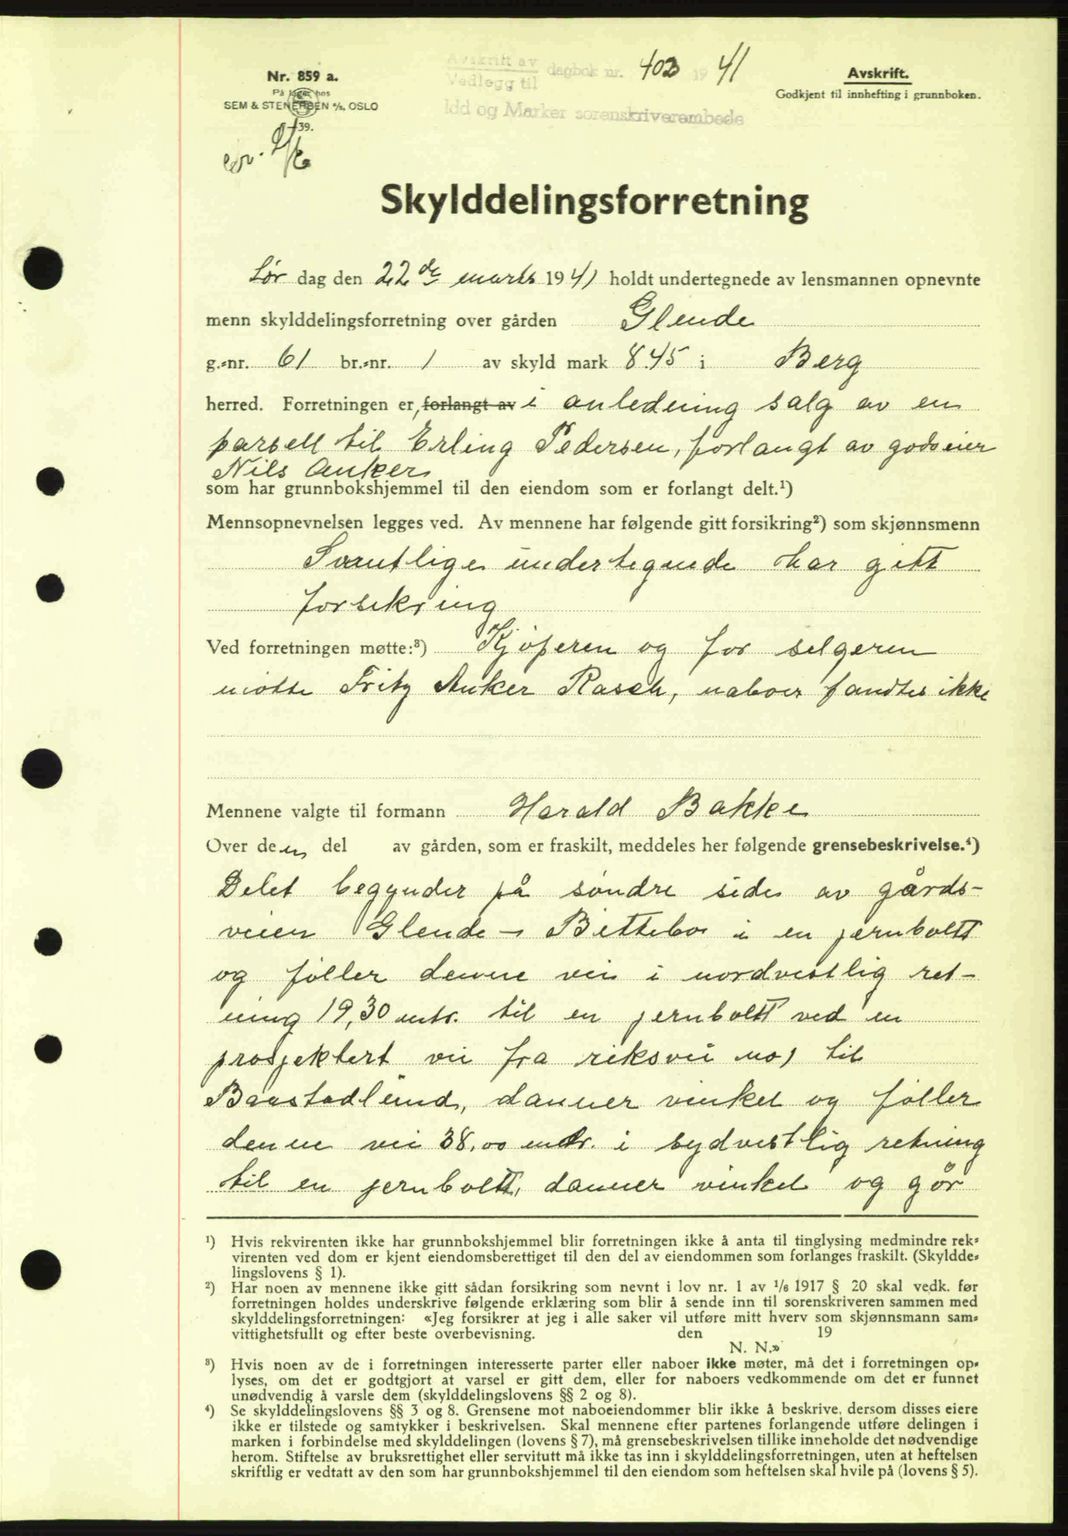 Avskrift av
Vedlegg til dagbok nr. 403 1941
Idd og Marker sorenskriverembede
Nr. 859 a.
På lager hos
SEM & STENERSEN A/S, OSLO
39.
Avskrift.
Godkjent til innhefting i grunnboken.
Skylddelingsforretning
Lør dag den 22de marts 1941 holdt undertegnede av lensmannen opnevnte
menn skylddelingsforretning over gården Glende
g.-nr. 61 br.-nr. 1 av skyld mark 8.45 i Berg
herred. Forretningen er forlangt av i anledning salg av en
parsell til Erling Pedersen, forlangt av godseier
Nils Anker
som har grunnbokshjemmel til den eiendom som er forlangt delt.¹)
Mennsopnevnelsen legges ved. Av mennene har følgende gitt forsikring²) som skjønnsmenn
Samtlige undertegnede har gitt
forsikring
Ved forretningen møtte:³) Kjøperen og for selgeren
møtte Fritz Anker Rasch, naboer fandtes ikke
Mennene valgte til formann Harald Bakke
Over den del av gården, som er fraskilt, meddeles her følgende grensebeskrivelse.⁴)
Delet begynder på søndre side av gårds-
veien Glende - Bittebo i en jernboltt
og føller denne vei i nordvestlig ret-
ning 19,30 mtr. til en jernboltt ved en
prosjektert vei fra riksvei no 1 til
Baastadlund, danner vinkel og føller
denne vei 38,00 mtr. i sydvestlig retning
til en jernboltt, danner vinkel og gör
¹) Hvis rekvirenten ikke har grunnbokshjemmel blir forretningen ikke å anta til tinglysing medmindre rek-
virenten ved dom er kjent eiendomsberettiget til den del av eiendommen som forlanges fraskilt. (Skyldde-
lingslovens § 1).
²) Har noen av mennene ikke gitt sådan forsikring som nevnt i lov nr. 1 av 1/6 1917 § 20 skal vedk. før
forretningen holdes underskrive følgende erklæring som blir å sende inn til sorenskriveren sammen med
skylddelingsforretningen: «Jeg forsikrer at jeg i alle saker vil utføre mitt hverv som skjønnsmann sam-
vittighetsfullt og efter beste overbevisning. den 19
N. N.»
³) Hvis noen av de i forretningen interesserte parter eller naboer ikke møter, må det i forretningen op-
lyses, om det er godtgjort at varsel er gitt dem, eller for naboers vedkommende om det er funnet
unødvendig å varsle dem (skylddelingslovens §§ 2 og 8).
⁴) Se skylddelingslovens §§ 3 og 8. Grensene mot naboeiendommer blir ikke å beskrive, dersom disses eiere
ikke er tilstede og samtykker i beskrivelsen. Skal mennene efter partenes forlangende utføre delingen i
marken i forbindelse med skylddelingen (lovens § 7), må grensebeskrivelsen tillike inneholde det nødvendige
herom. Stiftelse av bruksrettighet eller servitutt må ikke tas inn i skylddelingsforretningen, uten at heftelsen
skriftlig er vedtatt av den som har grunnbokshjemmel til den eiendom som heftelsen skal hvile på (lovens § 5).